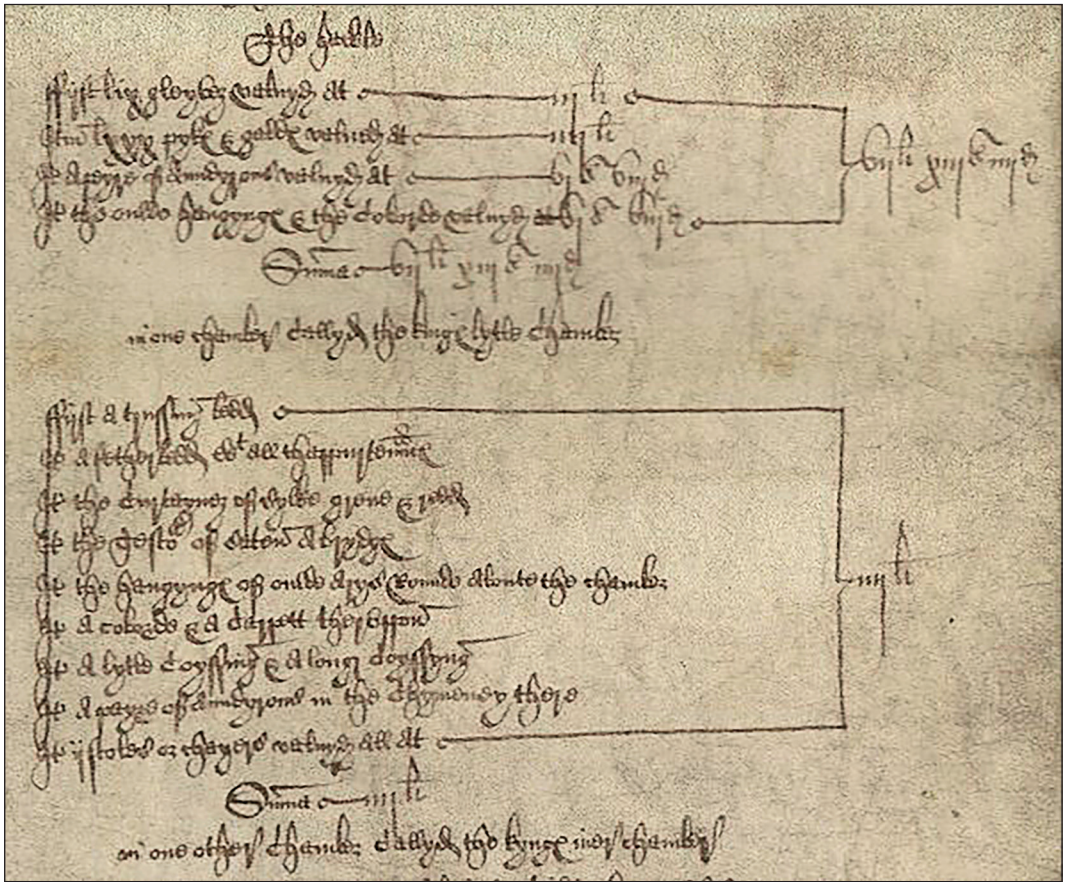 The halle
ffyrst lix gleyvez valuyd at iij li
Itm lxxx pykes & valuyd at iij li
It a payre of Aundyrons valuyd at vj s viij d
It the oulde hangynges & the Coborde valuyd at vj s viij d
vij li xiij s iiij d
Summa vij li xiij s iiij d
in one chamber Callyd the kynges lytle Chamber
ffyrst A trussing bedd
It A fetherbedd wt all thappurtennces
It the Curteynez of sylke grene & redd
It the of Saten A brydges
It the hangynges of oulde Arys Rounde Aboute the chamber
It A Coborde & A Carpett therappon
It A lytle Coysshing & A long Coysshyng
It A payre of Aundyrons in the Chymeney there
It ij stoles or chayers valuyd all At
iiij li
Summa iiij li
in one other Chamber Callyd the kynges chamber